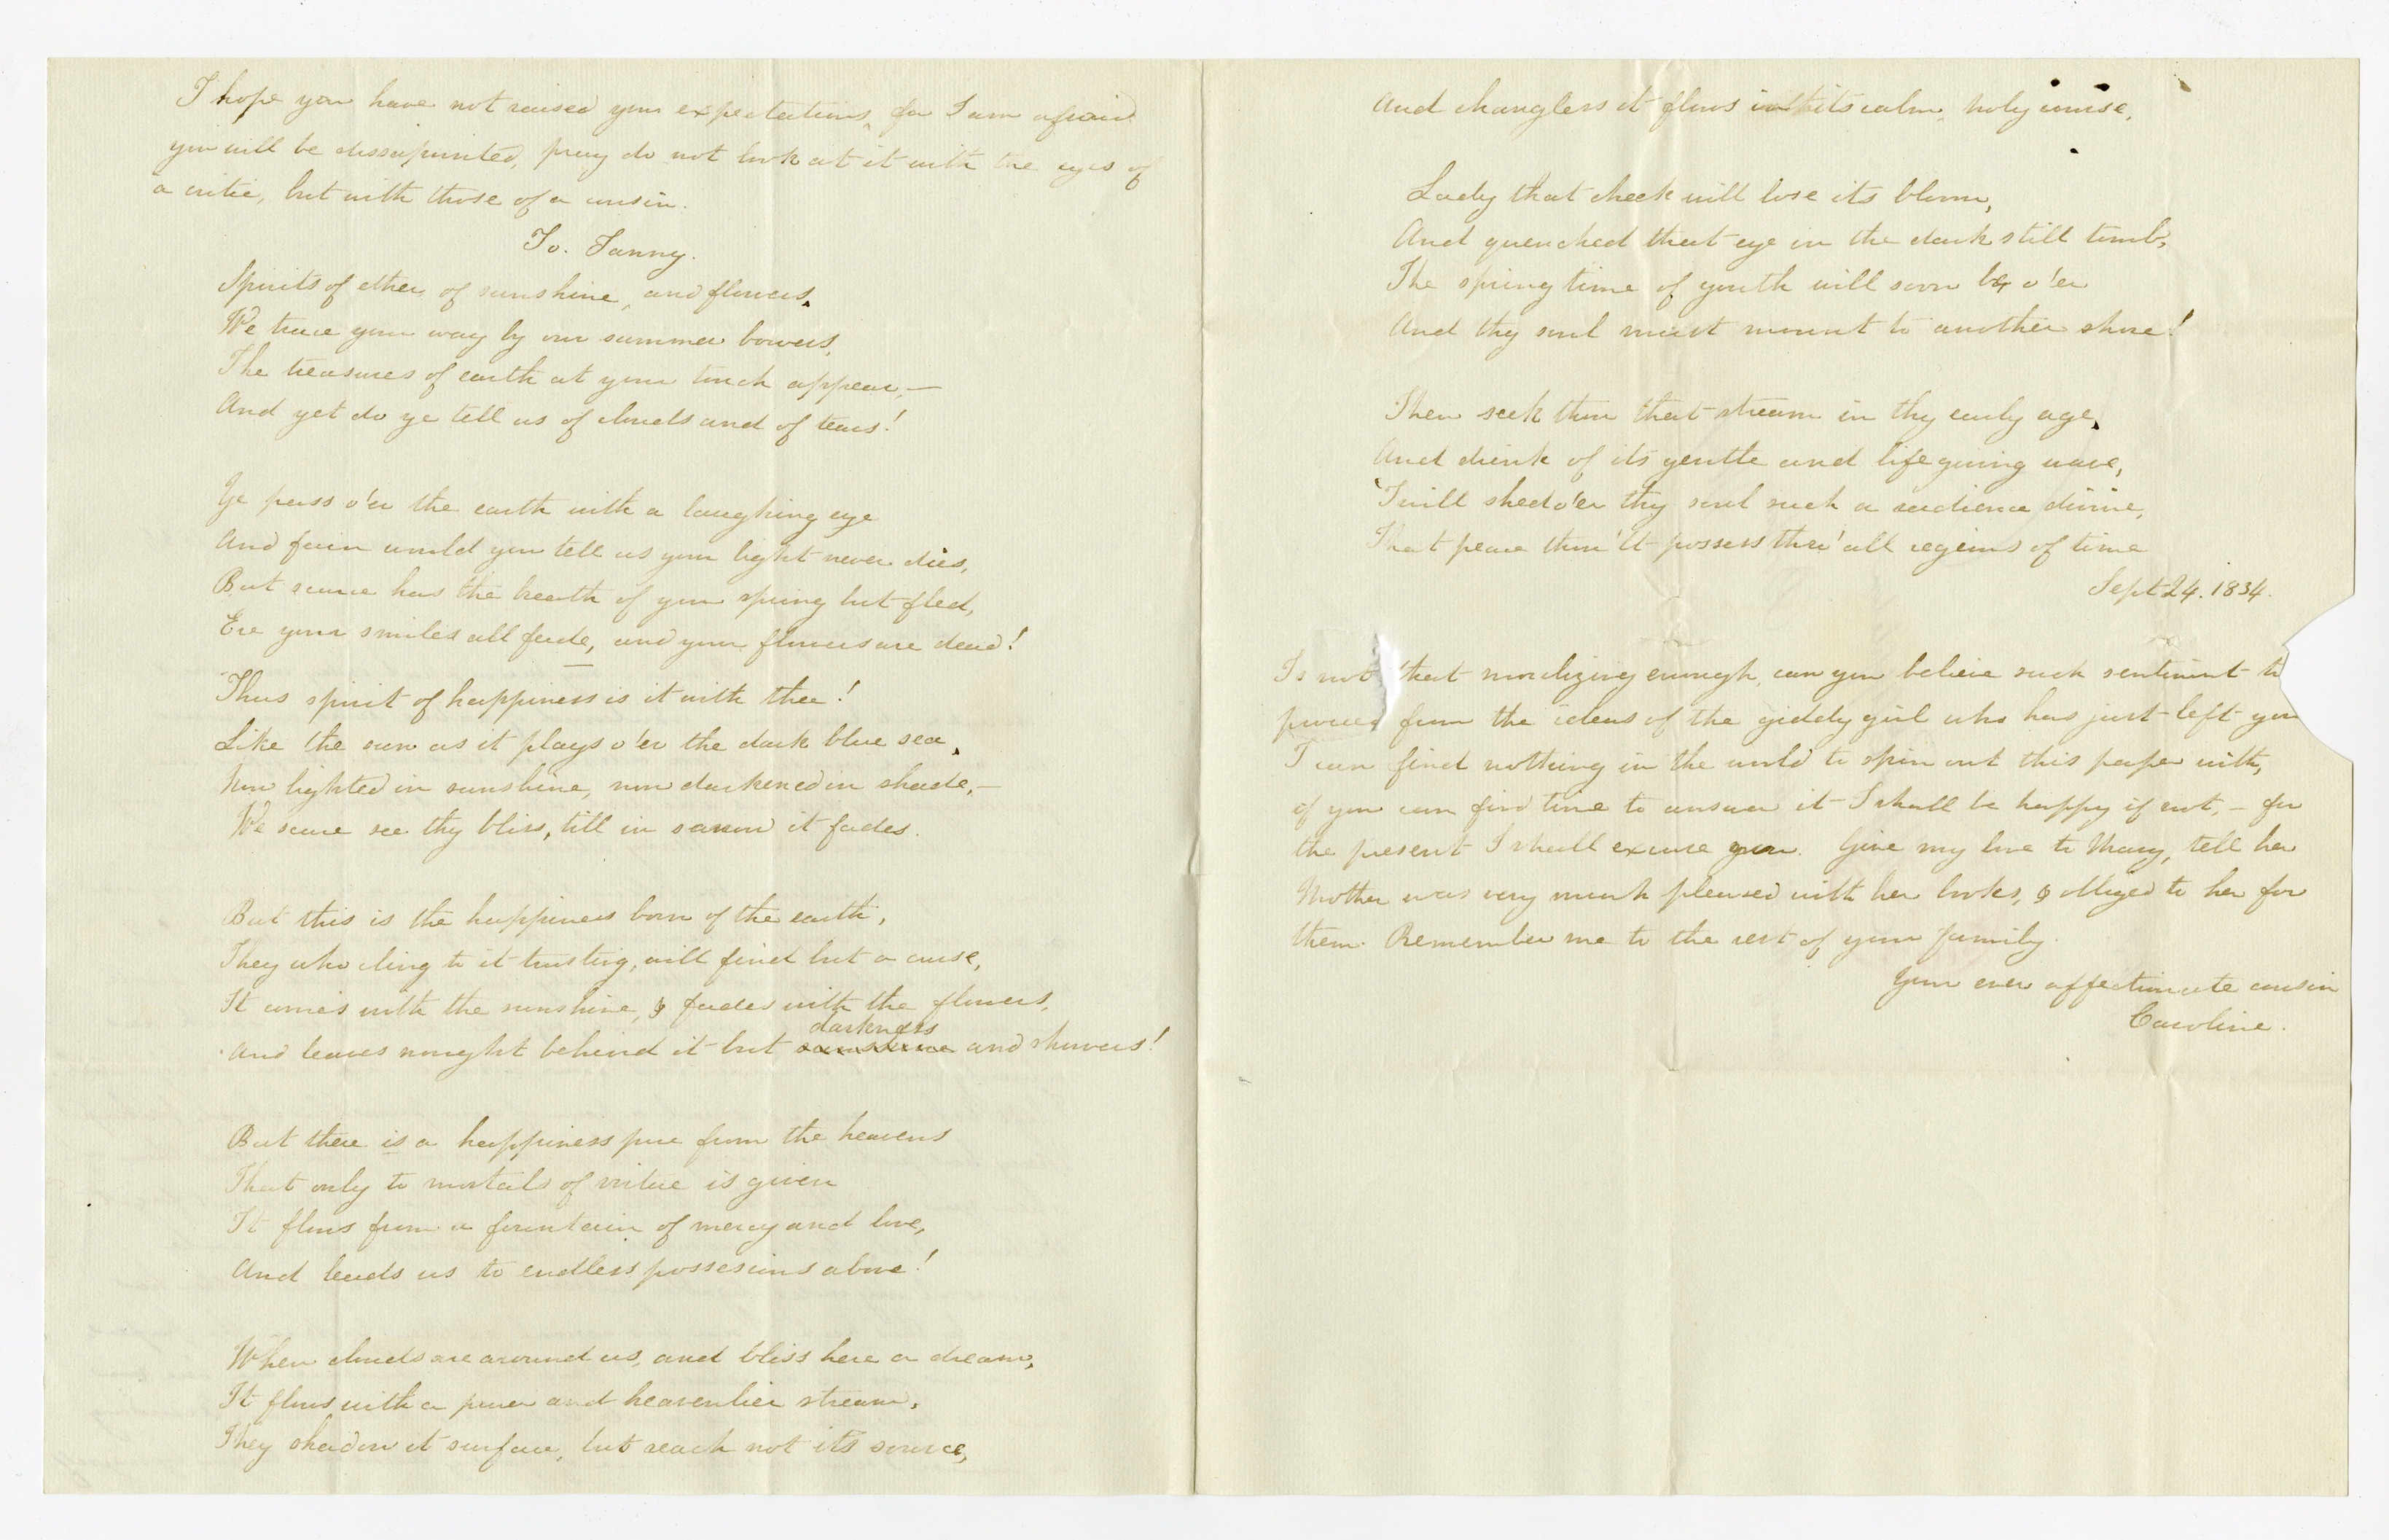 I hope you have not raised your expectations, for I am afraid
you will be dissapointed, pray do not look at it with the eyes of
a critic, but with those of a cousin.
To. Fanny.
Spirits of ether, of sunshine, and flowers,
We trace your way by our summer bowers,
The treasures of earth at your touch appear,—
And yet do ye tell us of clouds and of tears!
Ye pass o'er the earth with a laughing eye
And fain would you tell us your light never dies,
But scarce has the breath of your spring but fled,
Ere your smiles all fade, and your flowers are dead!
Thus spirit of happiness is it with thee!
Like the sun as it plays o'er the dark blue sea,
Now lighted in sunshine, now darkened in shade,—
We scarce see thy bliss, till in sorrow it fades.
But this is the happiness born of the earth,
They who cling to it trusting, will find but a curse,
It comes with the sunshine, & fades with the flowers,
darkness
And leaves nought behind it but sunshine and showers!
But there is a happiness pure from the heavens
That only to mortals of virtue is given
It flows from a fountain of mercy and love,
And leads us to endless possesions above!
When clouds are around us, and bliss here a dream,
It flows with a purer and heavenlier stream,
They shadow it surface, but reach not its source,
And changless it flows in its calm, holy course,
Lady that cheek will lose its bloom,
And quenched that eye in the dark still tomb,
The spring time of youth will soon be o'er
And thy soul must mount to another shore!
Then seek thou that stream in thy early age,
And drink of its gentle and life giving wave,
'Twill shed o'er thy soul such a radience divine,
That peace thou'lt possess thro' all regions of time
Sept 24. 1834.
Is not that moralizing enough, can you believe such sentiment to
proceed from the ideas of the giddy girl who has just left you
I can find nothing in the world to spin out this paper with,
if you can find time to answer it I shall be happy if not,— for
the present I shall excuse you. Give my love to Mary, tell her
Mother was very much pleased with her books, & obliged to her for
them. Remember me to the rest of your family.
Your ever affectionate cousin
Caroline.